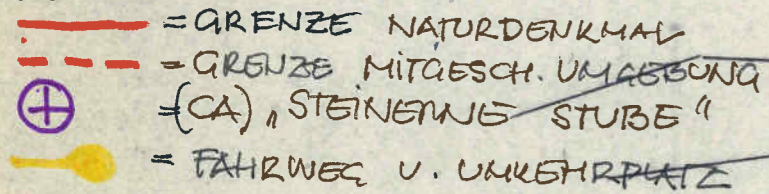 = GRENZE NATURDENKMAL
= GRENZE MITGESCH. UMGEBUNG
=(CA) „STEINERNE STUBE“
= FAHRWEG U. UMKEHRPLATZ